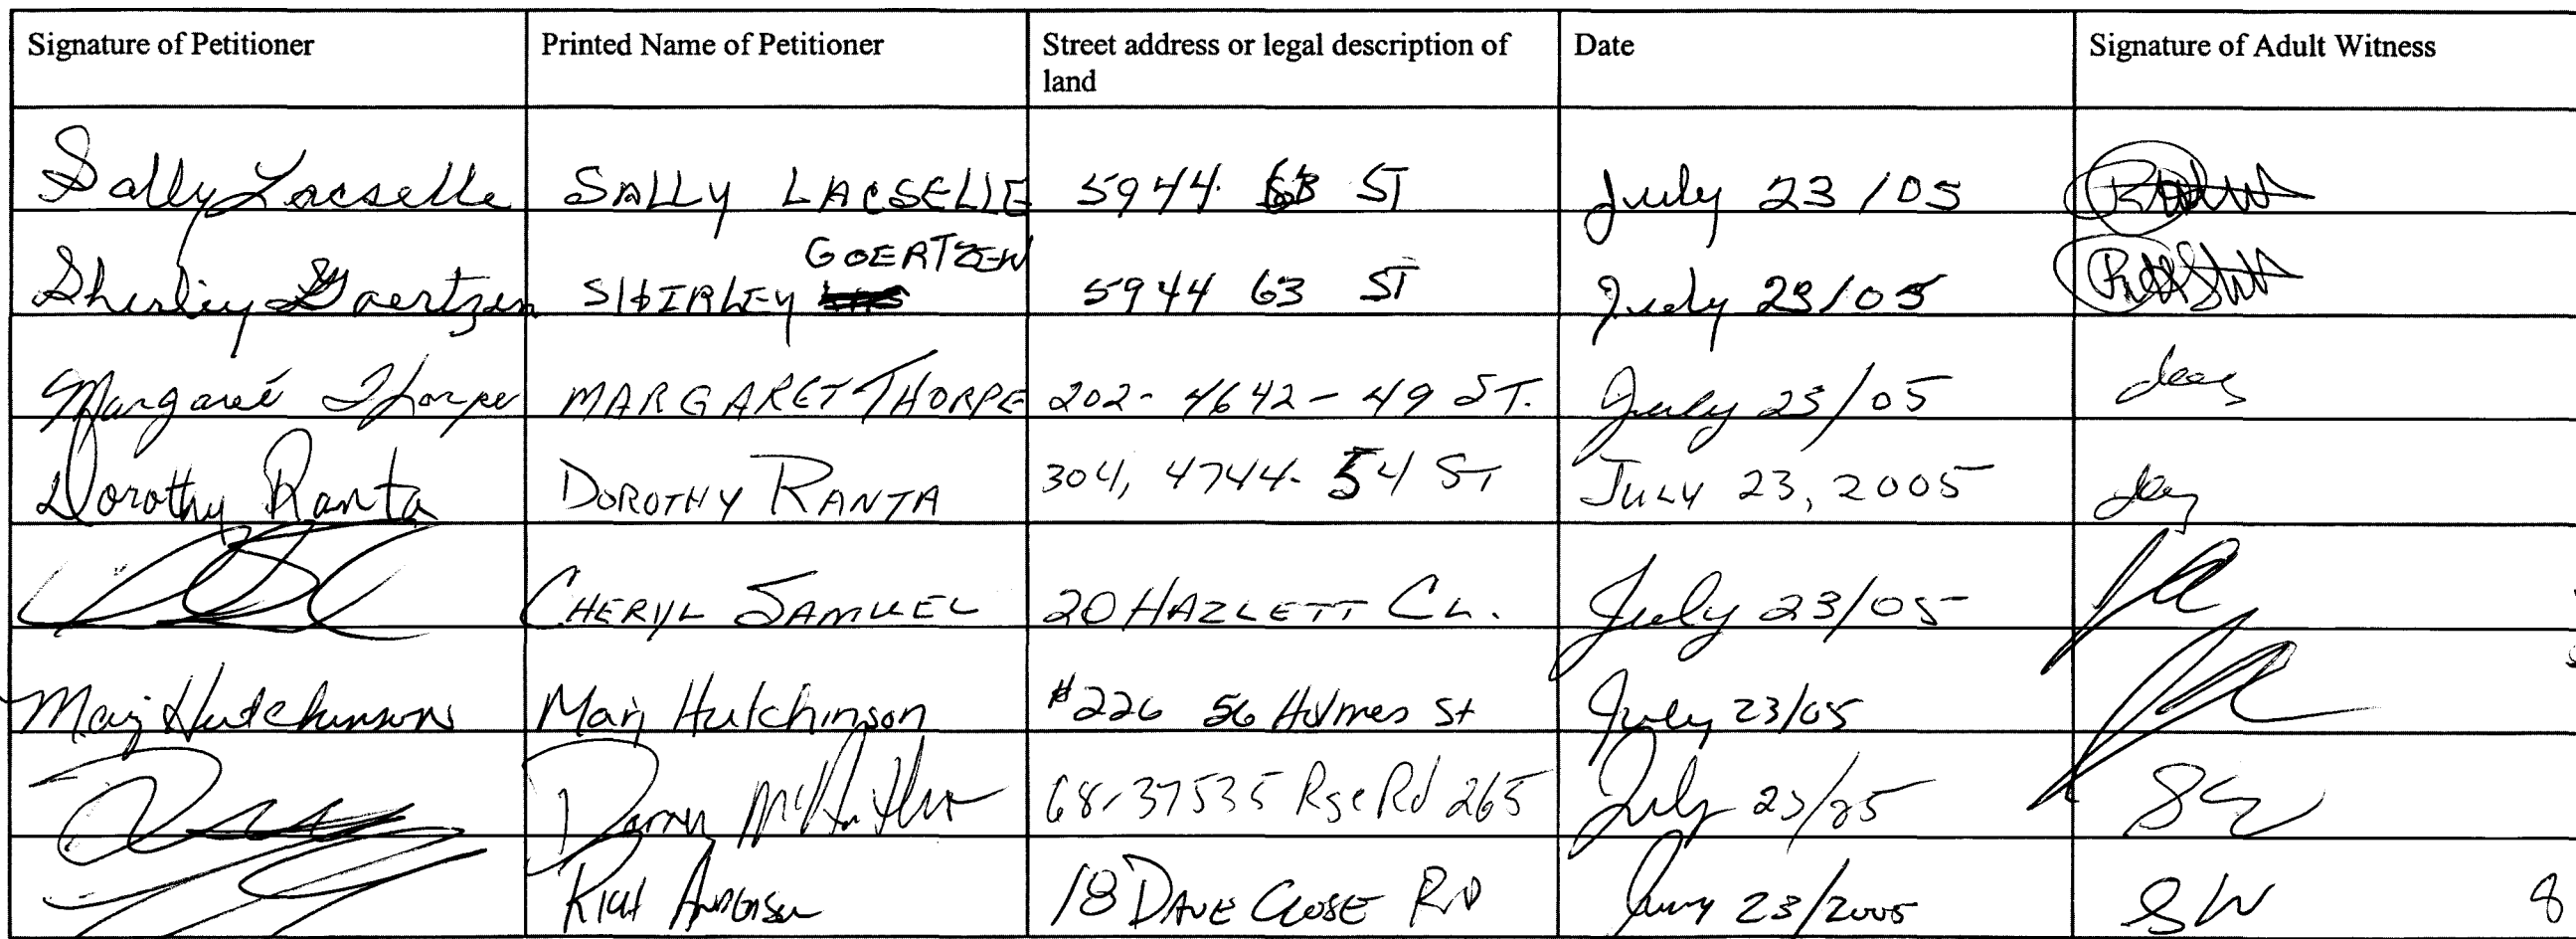 Signature of Petitioner
Printed Name of Petitioner
Street address or legal description of
land
Date
Signature of Adult Witness
Sally Lacselle
SALLY LACSELLE
5944 63 ST
July 23/05
Shirley Goertzen
SHIRLEY GOERTZEN
5944 63 ST
July 23/05
Margaret Thorpe
MARGARET THORPE
202- 4642- 49 ST.
July 23/05
Dorothy Ranta
DOROTHY RANTA
304, 4744- 54 ST
JULY 23, 2005
CHERYL SAMUEL
20 HAZLETT CL.
July 23/05
Marj Hutchinson
Marj Hutchinson
#226 56 Holmes St
July 23/05
68-37535 Rge Rd 265
July 23/05
RICH
18 DAVE CLOSE RD
23/2005
SW
8